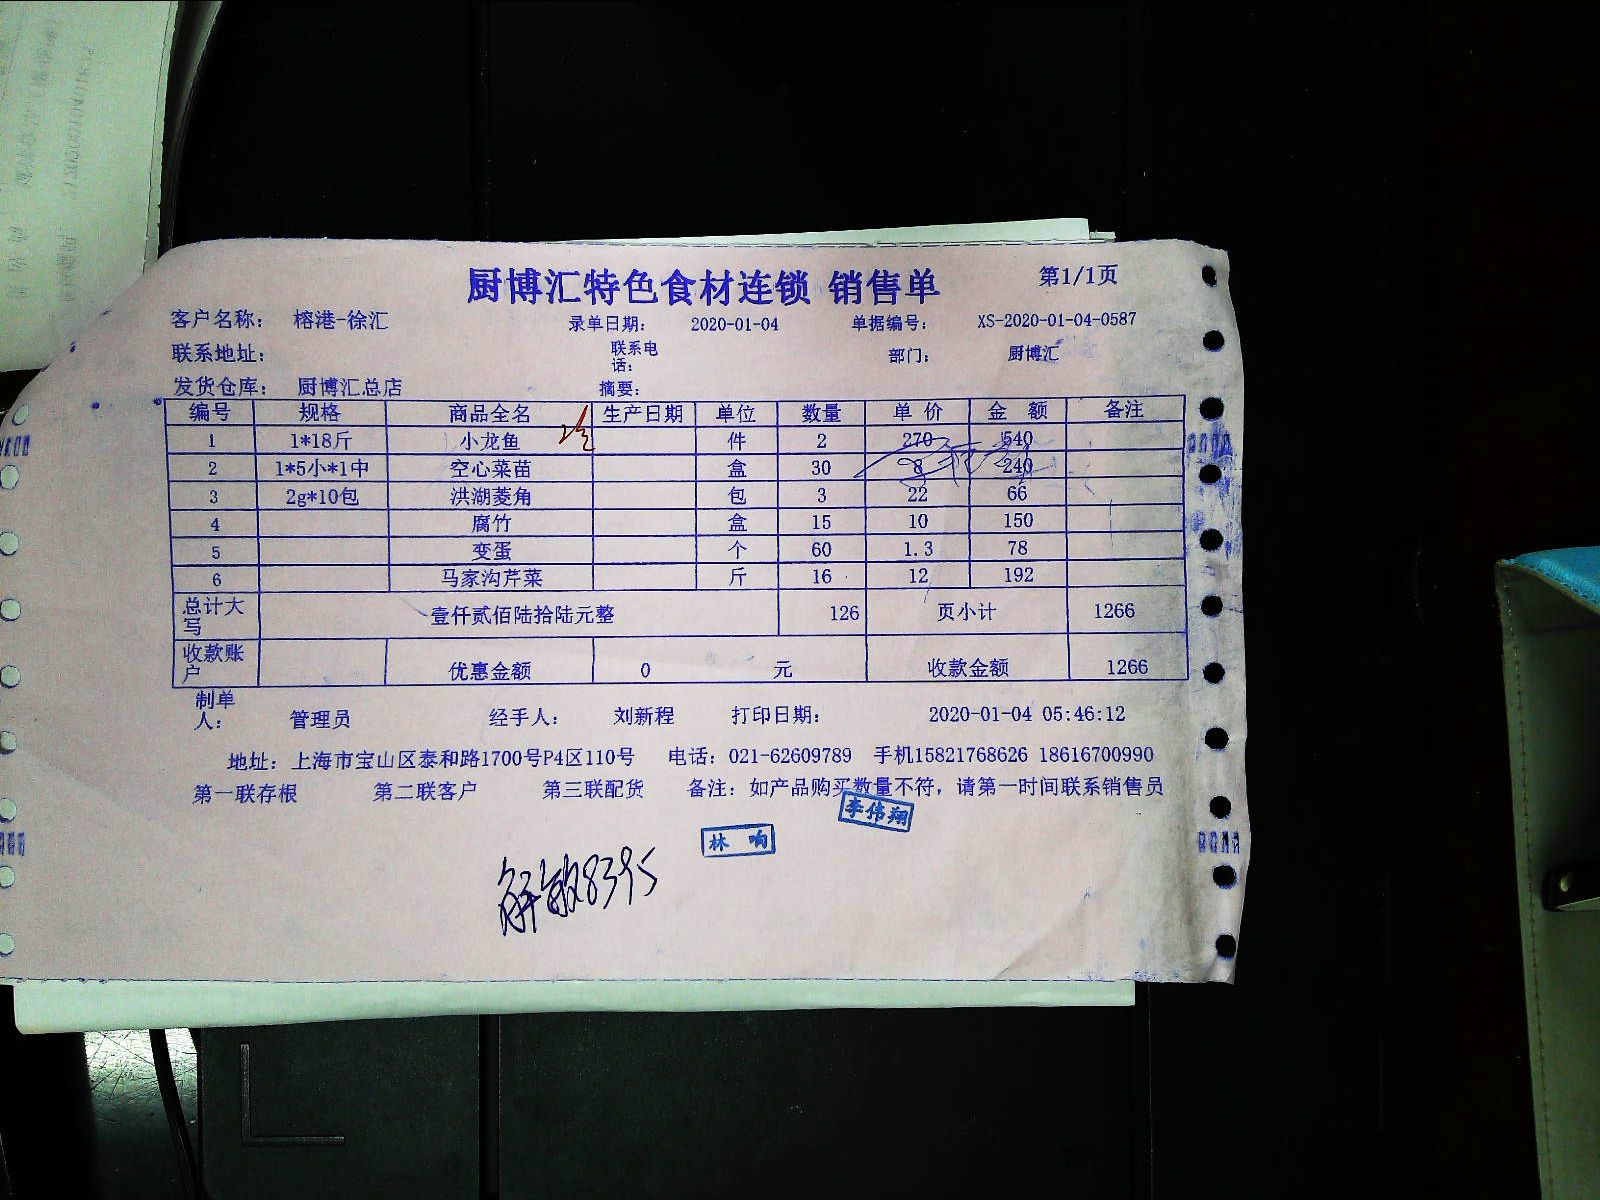 厨博汇特色食材连锁 销售单 第1/1页
客户名称： 榕港-徐汇 录单日期： 2020-01-04 单据编号： XS-2020-01-04-0587
联系地址： 联系电话： 部门： 厨博汇
发货仓库： 厨博汇总店 摘要：
编号 规格 商品全名 生产日期 单位 数量 单价 金额 备注
1 1*18斤 小龙鱼 件 2 270 540
2 1*5小*1中 空心菜苗 盒 30 8 240
3 2g*10包 洪湖菱角 包 3 22 66
4 腐竹 盒 15 10 150
5 变蛋 个 60 1.3 78
6 马家沟芹菜 斤 16 12 192
总计大写 壹仟贰佰陆拾陆元整 126 页小计 1266
收款账户 优惠金额 0 元 收款金额 1266
制单人： 管理员 经手人： 刘新程 打印日期： 2020-01-04 05:46:12
地址：上海市宝山区泰和路1700号P4区110号 电话：021-62609789 手机15821768626 18616700990
第一联存根 第二联客户 第三联配货 备注：如产品购买数量不符，请第一时间联系销售员
李伟翔
林响
解敏8395